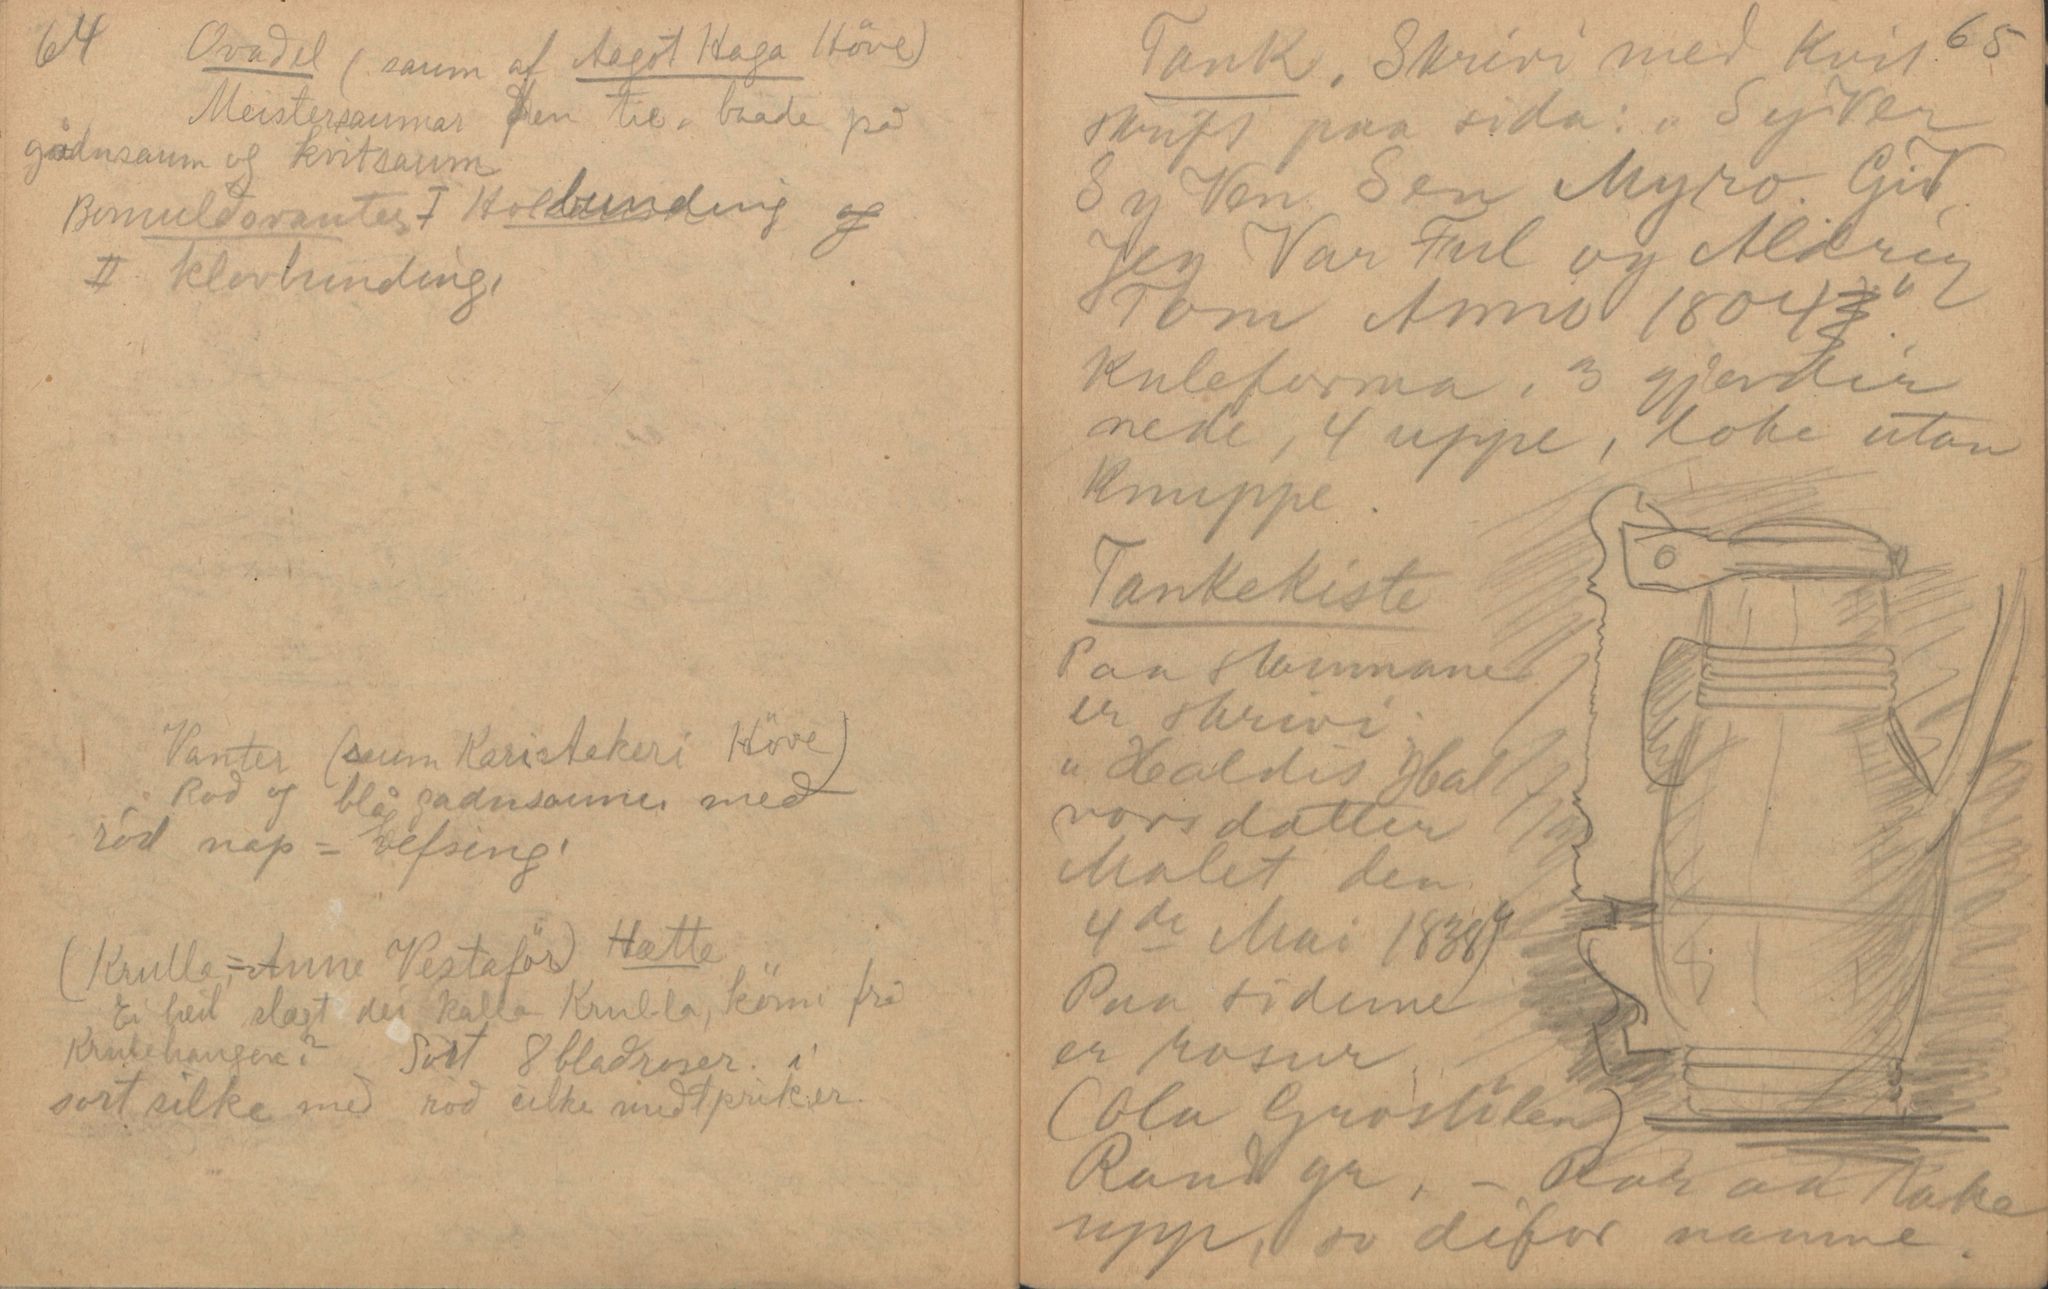 64
Ovadel (saum af Aagot Haga Höve)
Meistersaumar den tie. baade på
gådnsaum og kvitsaum
Bomuldsvanter I Holbunding og
II Klovbunding,
Vanter (saum Kari Aakeri Höve)
Rod og blå gadnsaume. med
röd nap = vefsing,
(Krulla = Anne Vestaför) Hætte
Ei heil slægt dei kalla Krul-la, kömi frå
Krullehaugen? Sort 8 bladroser i
sort silke med rod silke midtpriker.
65
Tank, Skrivi med Kvit
skrift paa sida: " Sy Ver
Sy Ven Sen Myro. Gid
Jeg Var Ful og Aldrig
Tom Anno 1804"
Kuleforma, 3 gjerdir
nede, 4 uppe, loke utan
Knuppe.
Tankekiste
Paa
er skrivi:
"Haldis Hal
vorsdatter
Malet den
4de Mai 1838"
Paa siderne
er rosur
(Ola Grostölen)
Rund gr, - Rar aa kaka
upp, so difor namne.